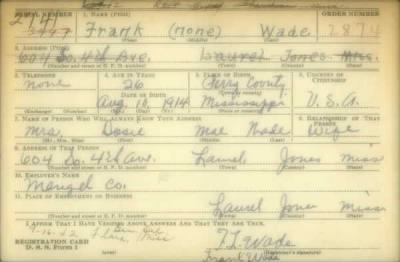 SERIAL NUMBER 1. NAME (Print) ORDER NUMBER
2141 Frank (none) Wade 2874
(First) (Middle) (Last)
2. ADDRESS (Print)
604 So. 4th Ave. Laurel Jones Miss.
(Number and street or R. F. D. number) (Town) (County) (State)
3. TELEPHONE 4. AGE IN YEARS 5. PLACE OF BIRTH 6. COUNTRY OF CITIZENSHIP
none 26 Perry County
DATE OF BIRTH (Town or county)
Aug. 10, 1914 Mississippi U.S.A.
(Exchange) (Number) (Mo.) (Day) (Yr.) (State or country)
7. NAME OF PERSON WHO WILL ALWAYS KNOW YOUR ADDRESS 8. RELATIONSHIP OF THAT PERSON
Mrs. Dosie Mae Wade Wife
(Mr., Mrs., Miss) (First) (Middle) (Last)
9. ADDRESS OF THAT PERSON
604 So. 4th Ave. Laurel Jones Miss
(Number and street or R. F. D. number) (Town) (County) (State)
10. EMPLOYER'S NAME
Mangel Co.
11. PLACE OF EMPLOYMENT OR BUSINESS
Laurel Jones Miss
(Number and street or R. F. D. number) (Town) (County) (State)
I AFFIRM THAT I HAVE VERIFIED ABOVE ANSWERS AND THAT THEY ARE TRUE.
REGISTRATION CARD
D. S. S. Form 1
F. L. Wade
Frank Wade